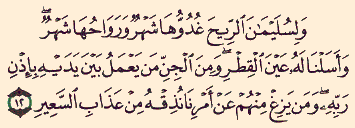 وَلِسُلَيْمَٰنَ ٱلرِّيحَ غُدُوُّهَا شَهْرٌ وَرَوَاحُهَا شَهْرٌ ۖ
وَأَسَلْنَا لَهُۥ عَيْنَ ٱلْقِطْرِ ۖ وَمِنَ ٱلْجِنِّ مَن يَعْمَلُ بَيْنَ يَدَيْهِ بِإِذْنِ
رَبِّهِۦ ۖ وَمَن يَزِغْ مِنْهُمْ عَنْ أَمْرِنَا نُذِقْهُ مِنْ عَذَابِ ٱلسَّعِيرِ ١٢